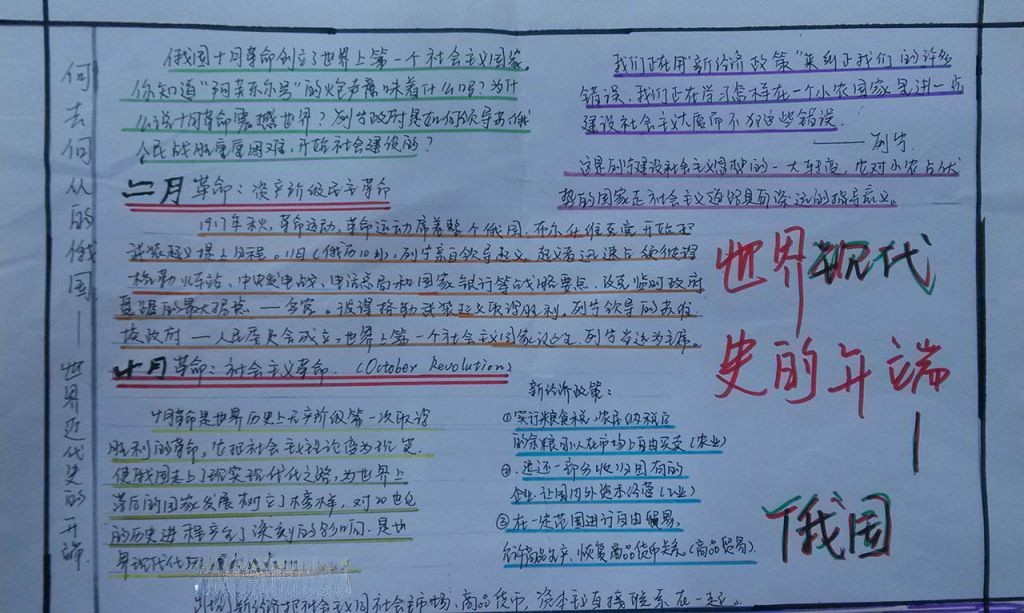 何去何从的俄国——世界近代史的开端
俄国十月革命创立了世界上第一个社会主义国家。
你知道"阿芙乐尔号"的炮声意味着什么吗?为什
么说十月革命震撼世界?列宁政府是如何领导苏俄
人民战胜重重困难,开始社会建设的?
二月革命:资产阶级民主革命
1917年秋,革命运动,革命运动席卷整个俄国,布尔什维克党开始把
武装起义提上日程。11日(俄历10月),列宁亲自领导起义,起义者迅速占领彼得
格勒火车站、中央发电站、电话总局和国家银行等战略要点,攻克临时政府
盘踞的最大据点——冬宫。彼得格勒武装起义取得胜利,列宁领导的苏维
埃政府——人民委员会成立,世界上第一个社会主义国家诞生,列宁当选为主席。
十月革命:社会主义革命.(October Revolution)
十月革命是世界历史上无产阶级第一次取得
胜利的革命,它把社会主义理论变为现实.
使俄国走上了现实现代化之路,为世界上
落后的国家发展树立了榜样,对20世纪
的历史进程产生了深刻的影响.是世
界现代史
新经济把社会主义同社会市场、商品货币,资本主义直接联系在一起。
我们正在用"新经济政策"来纠正我们的许多
错误,我们正在学习怎样在一个小农国家里进一步
建设社会主义大厦而不犯这些错误.
——列宁
这是列宁建设社会主义思想的一大转变,它对小农占优
势的国家走社会主义道路具有深远的指导意义。
新经济政策:
①实行粮食税,农民纳税后
的余粮可以在市场上自由买卖(农业)
②.退还一部分收归国有的
企业.让国内外资本经营(工业)
③在一定范围进行自由贸易,
允许商品生产,恢复商品货币关系.(商品贸易)
世界现代
史的开端
—
俄国